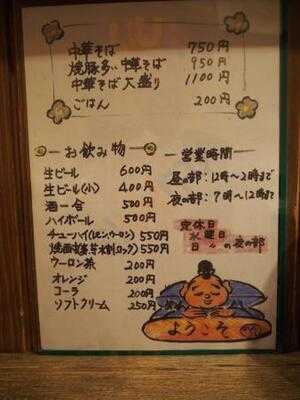 中華そば 750円
焼豚多い中華そば 950円
中華そば大盛り 1100円
ごはん 200円
お飲み物
生ビール 600円
生ビール(小) 400円
酒一合 500円
ハイボール 500円
チューハイ(レモン,ウーロン) 550円
焼酎(麦,芋,水割,ロック) 550円
ウーロン茶 200円
オレンジ 200円
コーラ 200円
ソフトクリーム 250円
営業時間
昼の部:12時〜2時まで
夜の部:7時〜12時まで
定休日
水曜日
日〃の夜の部
ようこそ